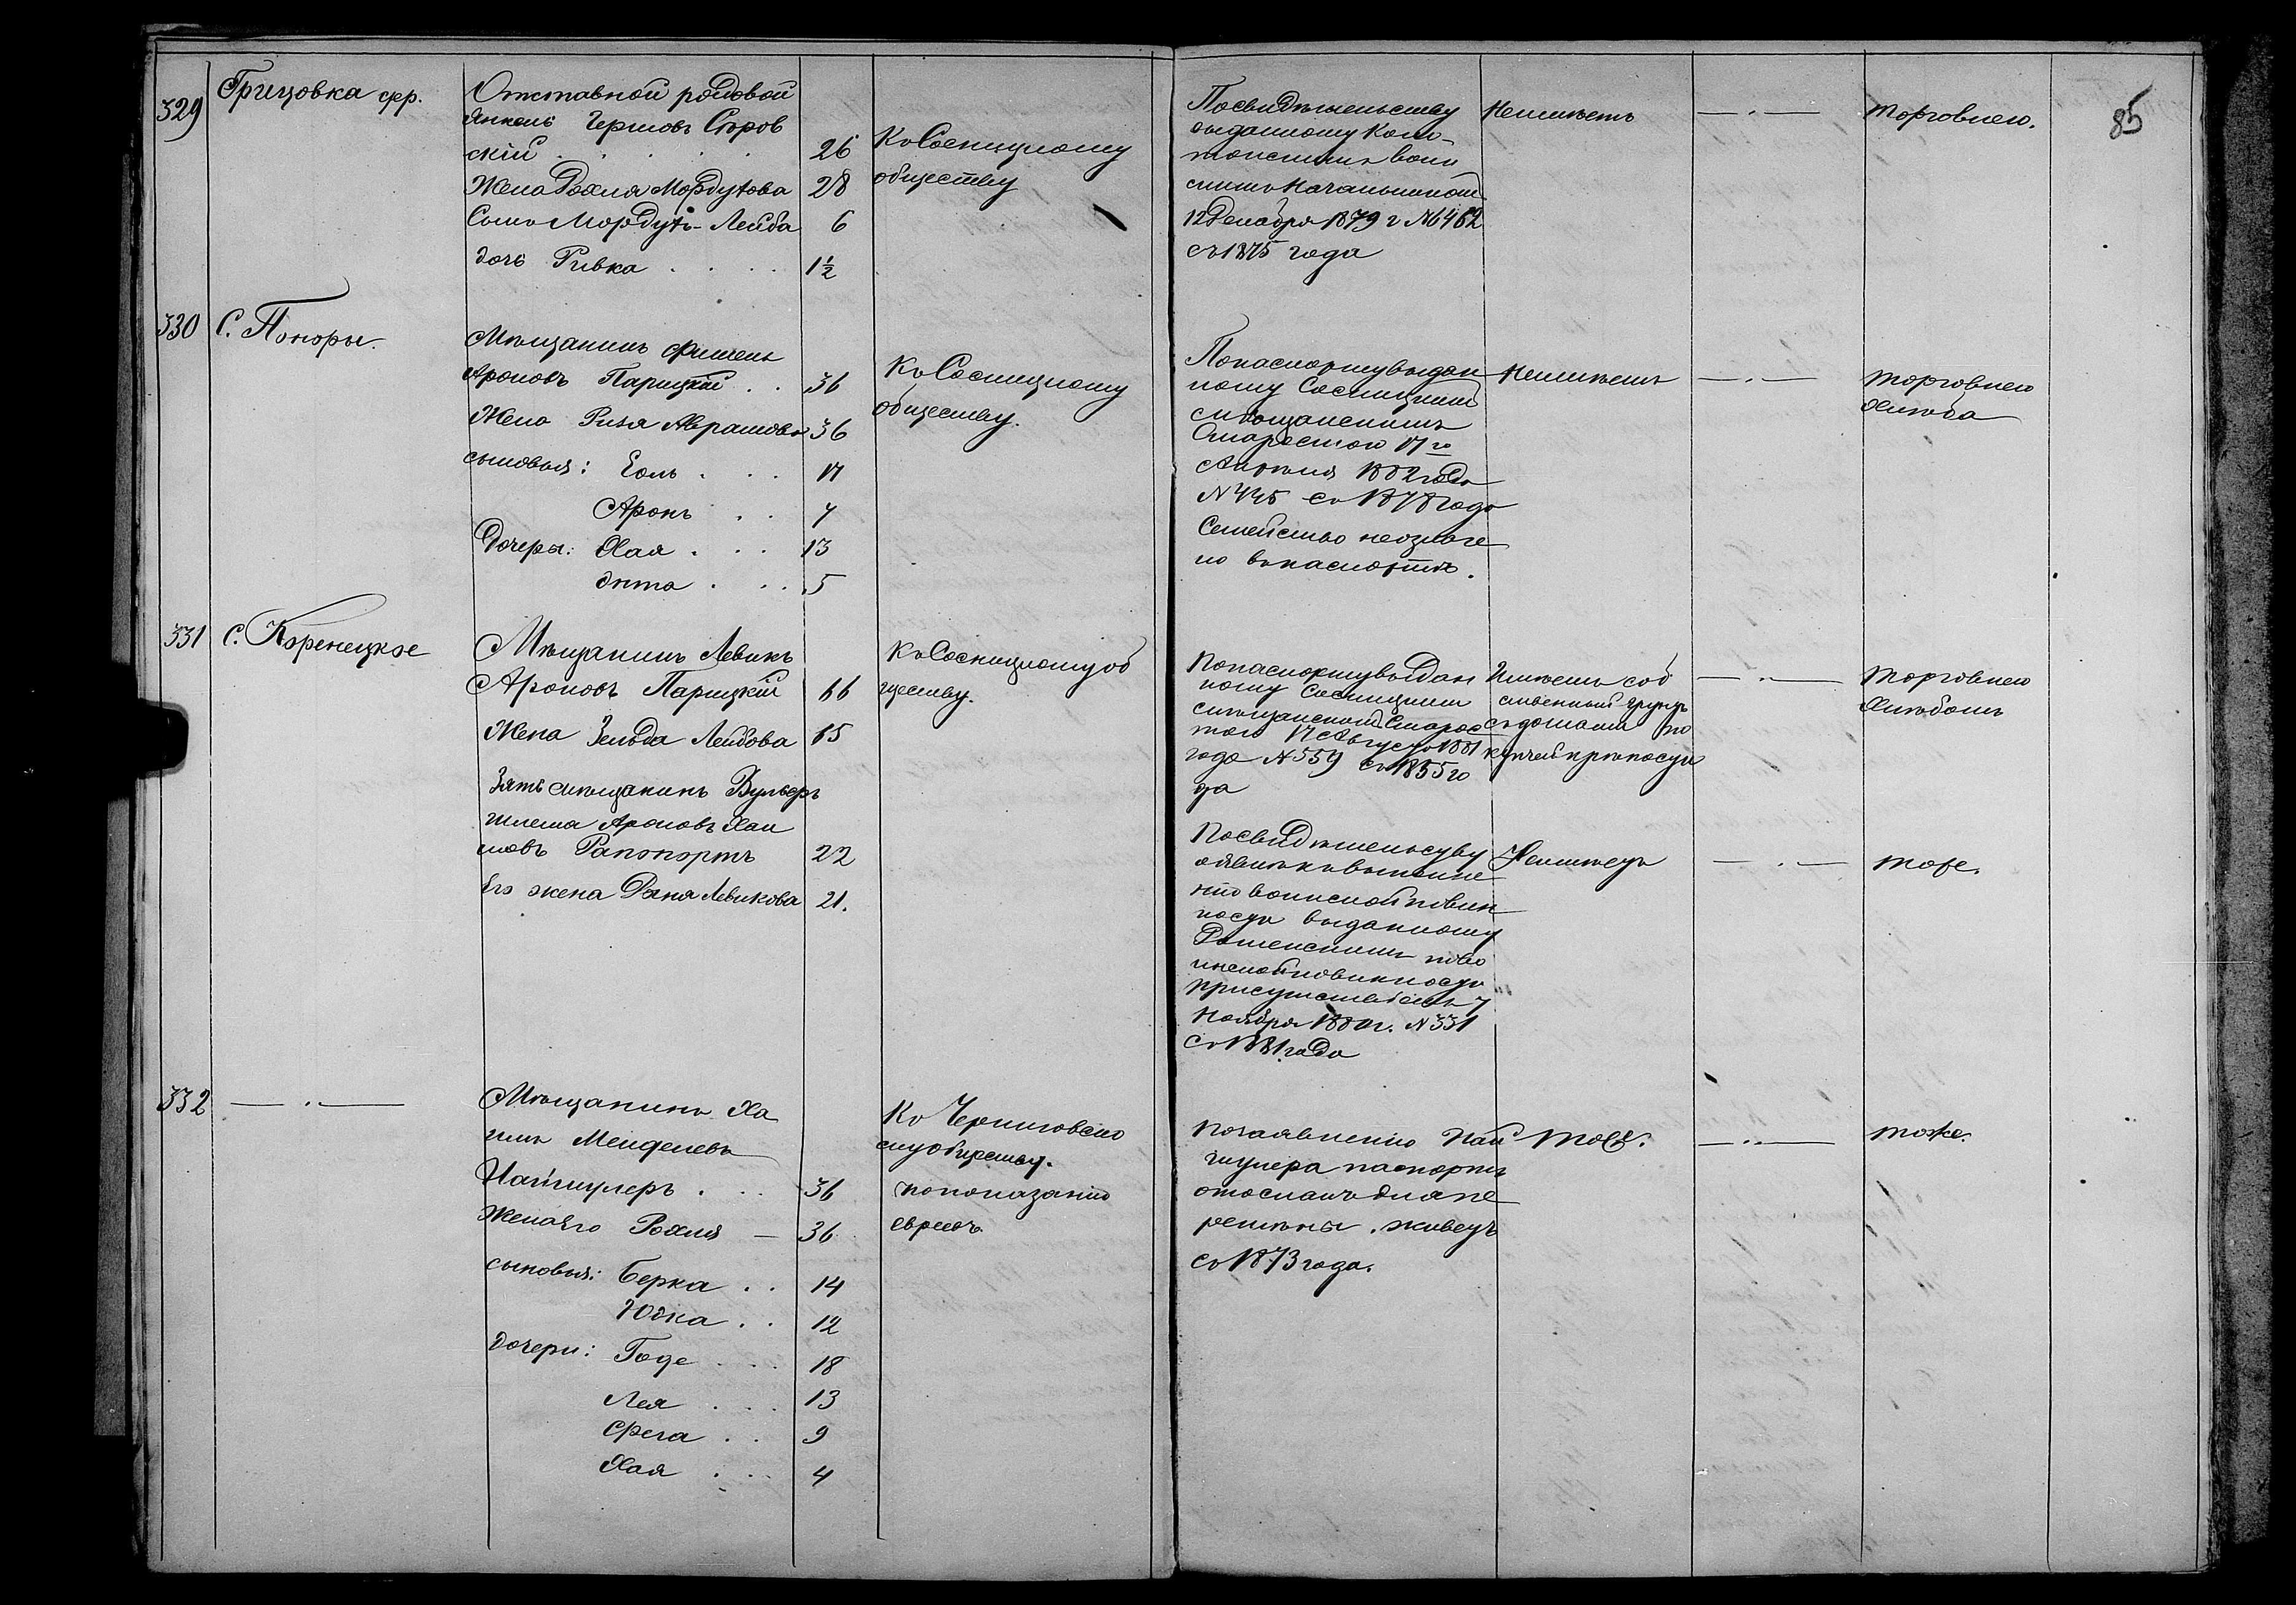 85
329
Грицовка фр.
Отставной рядовой
Янкель Герцовъ Сѣров
скій . . . . . 26
Жена Рохля Мордухова 28
Сынъ Мордухъ-Лейба 6
дочь Ривка . . . . 1½
Къ Сосницкому
обществу
По свидѣтельству
выданному Кон-
тонскимъ воин
скимъ Начальникомъ
12 Декабря 1879 г № 6462
съ 1875 года
Неимѣетъ
— . —
торговлею.
330
С. Поноры.
Мѣщанинъ Фишель
Ароновъ Парицкій . . 36
Жена Риза Абрамова 36
сыновья: Еоль . . . 17
Аронъ . . 7
Дочеры: Хая . . . 13
Энта . . . 5
Къ Сосницкому
обществу.
По паспорту выдан
ному Сосницкимъ
мѣщанскимъ
Старостою 17го
Апрѣля 1882 года
№ 445 съ 1878 года
Семейство не означе
но въ паспортѣ.
Неимѣетъ
— . —
торговлею
хлѣба
331
С. Коренецкое
Мѣщанинъ Левикъ
Ароновъ Парицкій 66
Жена Зельда Лейбова 65
Зять мѣщанинъ Вульфъ
Шлема Ароновъ Хаи
мовъ Рапопортъ 22
Его жена Рэня Левикова 21.
Къ Сосницкому об
ществу.
По паспорту выдан
ному Сосницкимъ
мѣщанскимъ Старос
тою 17 Августа 1881
года № 559 съ 1855 го
да
Имѣетъ соб
ственный грунтъ
съ домами по
купчей крѣпости
— . —
торговлею
хлѣбомъ
По свидѣтельству
о явкѣ къ выполне
нію воинской повин
ности выданному
Роменскимъ по во
инской повинности
присутствіемъ 7
Ноября 1880 г. № 331
съ 1881 года
Неимѣетъ
— . —
тоже.
332
— . —
Мѣщанинъ Ха
имъ Менделевъ
Найшулеръ . . . 36
Жена его Рохля — 36
сыновья: Берка . . 14
Юдка . . 12
дочери: Годе . . . 18
Лея . . . 13
Фрега . . 9
Хая . . . 4
Къ Черниговско
му обществу.
по показанію
евреевъ
По заявленію Най
шулера паспортъ
отосланъ для пе
ремѣны. живетъ
съ 1873 года.
тоже.
— .. —
тоже.